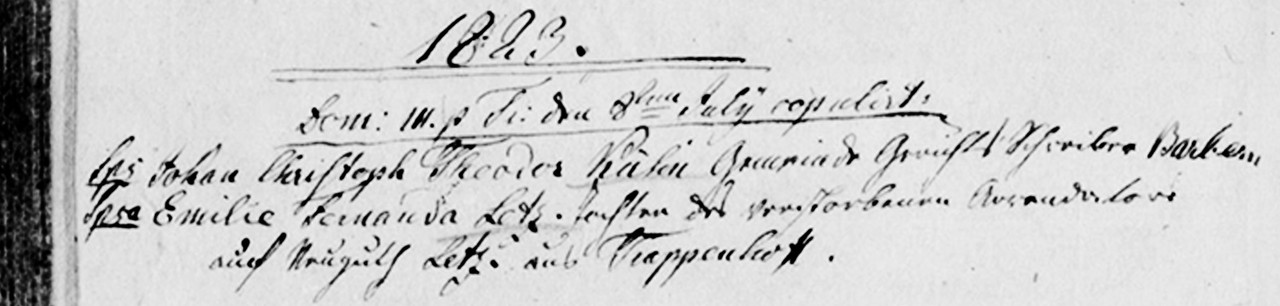 1823.
Dom: III. p Tr: den 8ten July copulirt.
Sps Johan Christoph Theodor Kühn Gemeinde Gerichts Schreiber Barbern
Spsa Emilie Fernanda Letz. Tochter des verstorbenen Arrendators
auf Neuguth Letz. aus Trappenhoff.